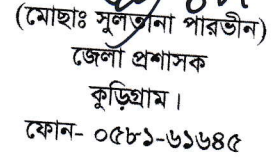 (মোছাঃ সুলতানা পারভীন)
জেলা প্রশাসক
কুড়িগ্রাম।
ফোন- ০৫৮১-৬১৬৪৫